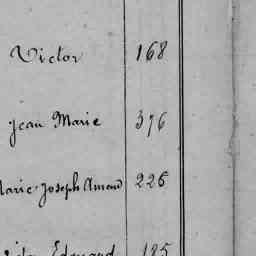 Victor 168
Jean Marie 376
Marie-Joseph Amand 226
Edouard 185